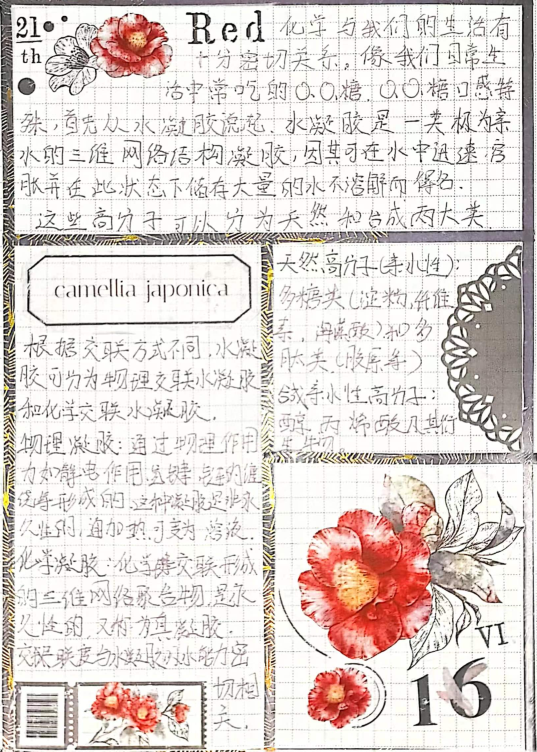 21
th
Red 化学与我们的生活有
十分密切关系。像我们日常生
活中常吃的Q.Q.糖.Q.Q.糖口感特
殊,首先从水凝胶说起.水凝胶是一类极为亲
水的三维网络结构凝胶,因其可在水中迅速溶
胀并在此状态下储存大量的水不溶解而得名.
这些高分子可以分为天然和合成两大类.
camellia japonica
根据交联方式不同,水凝
胶可分为物理交联水凝胶
和化学交联水凝胶.
物理凝胶:通过物理作用
力如静电作用 氢键 链的缠
绕等形成的.这种凝胶是非永
久性的,通加热可变为溶液.
化学凝胶:化学键交联形成
的三维网络聚合物,是永
久性的,又称为真凝胶.
交联度与水凝胶吸水能力密
切相
关.
天然高分子(亲水性):
多糖类(淀粉,纤维
素,海藻酸)和多
肽类(胶原等)
合成亲水性高分子:
醇,丙烯酸及其衍
生物
VI
16